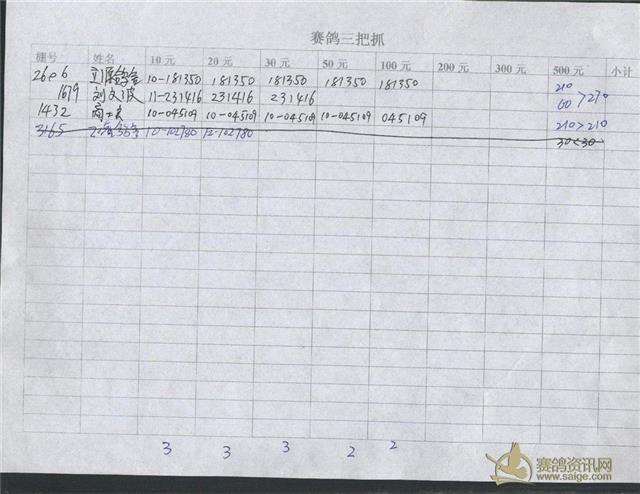 赛鸽三把抓
棚号 姓名 10 元 20 元 30 元 50 元 100 元 200 元 300 元 500 元 小计
2606 10-181350 181350 181350 181350 181350 210
1619 刘文波 11-231416 231416 231416 60 > 270
1432 10-045109 10-045109 10-045109 10-045109 045109 210 > 210
3165 10-102780 12-102780 30 < 30
3 3 3 2 2
赛鸽资讯网
www.saige.com